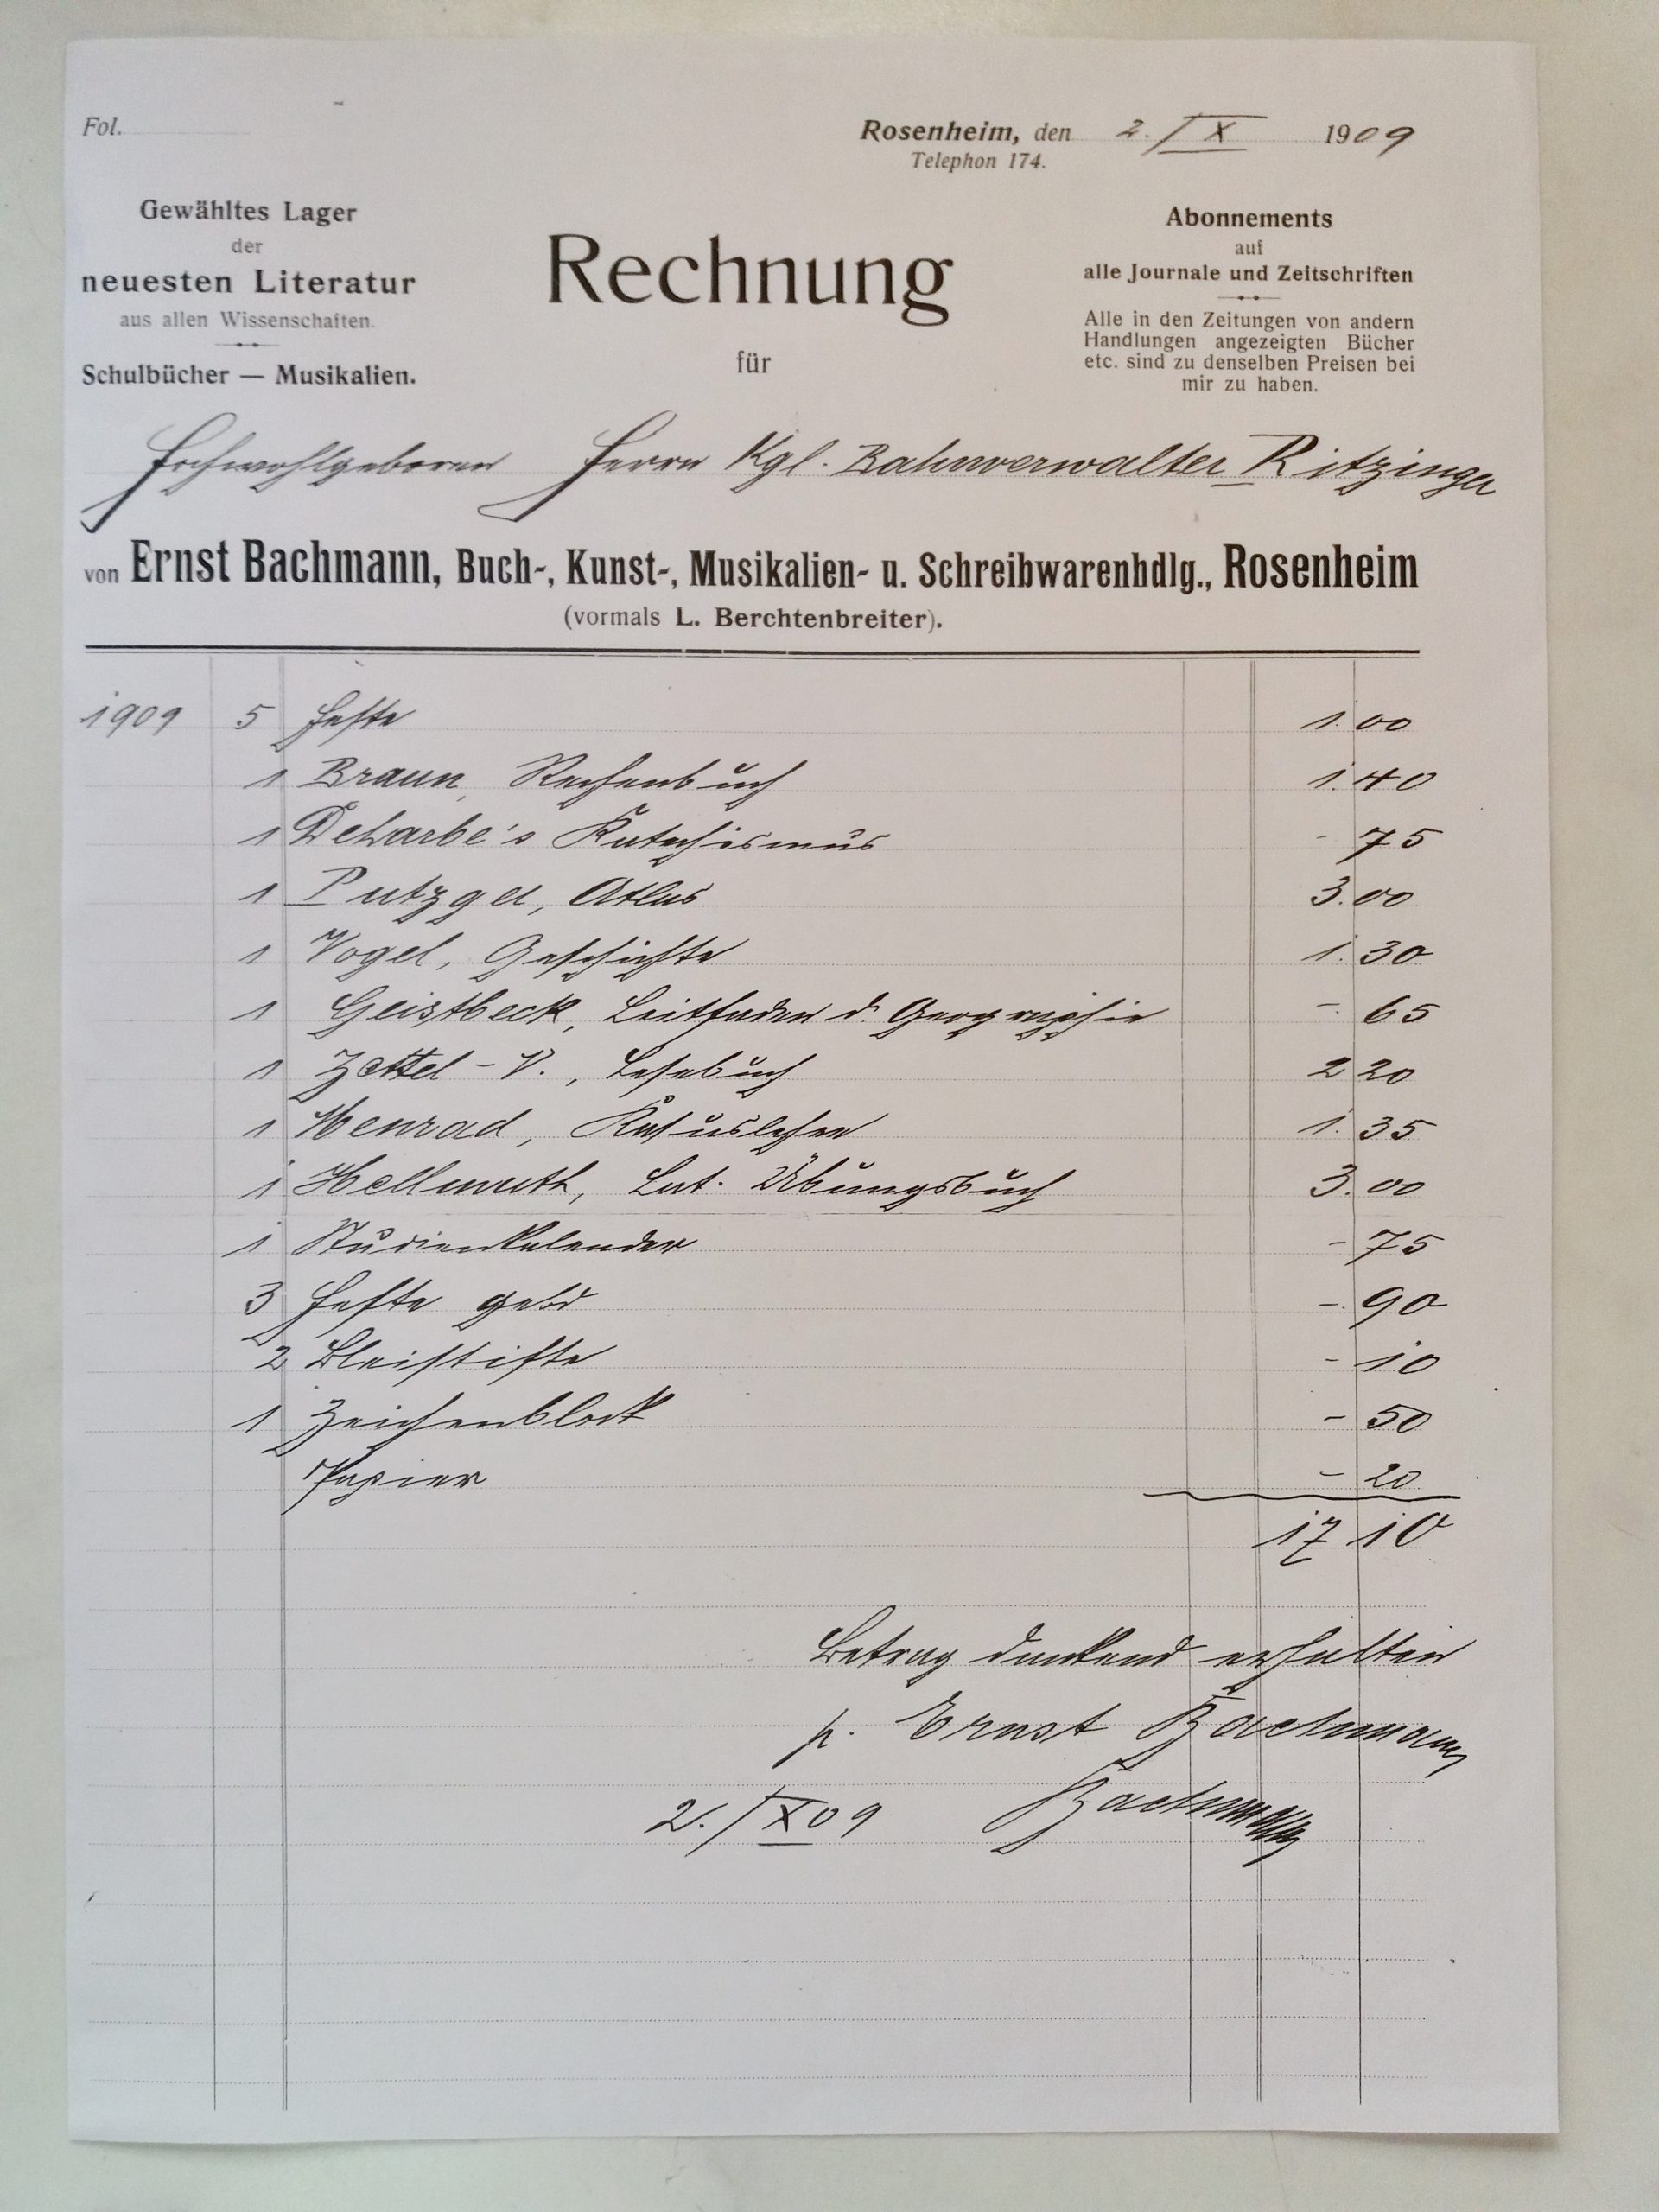 Fol.
Rosenheim, den 2. IX 1909
Telephon 174.
Gewähltes Lager
der
neuesten Literatur
aus allen Wissenschaften.
Schulbücher — Musikalien.
Rechnung
für
Abonnements
auf
alle Journale und Zeitschriften
Alle in den Zeitungen von andern
Handlungen angezeigten Bücher
etc. sind zu denselben Preisen bei
mir zu haben.
Hochwohlgeboren Herrn Kgl. Bahnverwalter Ritzinger
von Ernst Bachmann, Buch-, Kunst-, Musikalien- u. Schreibwarenhdlg., Rosenheim
(vormals L. Berchtenbreiter).
1909 5 Hefte 1.00
1 Braun, Rechenbuch 1.40
1 Deharbe's Katechismus - 75
1 Putzger, Atlas 3.00
1 Vogel, Geschichte 1.30
1 Geistbeck, Leitfaden d. Geographie - 65
1 Zettel - V., Lesebuch 2 20
1 Menrad, Kasuslehre 1.35
1 Hellmuth, Lat. Übungsbuch 3.00
1 Studienkalender - 75
3 Hefte gebd - 90
2 Bleistifte - 10
1 Zeichenblock - 50
Papier - 20
17 10
Betrag dankend erhalten
p. Ernst Bachmann
2. IX 09 Bachmann